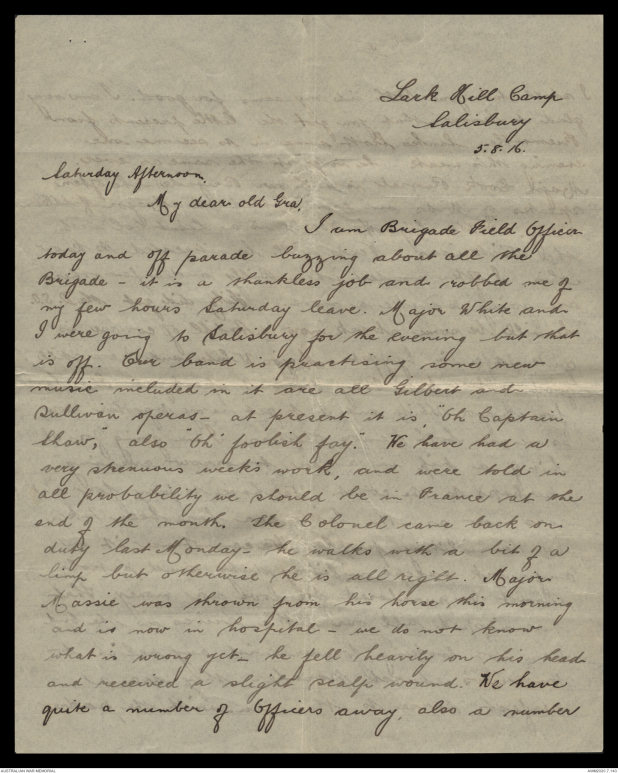 Lark Hill Camp
Salisbury
5.8.16.
Saturday Afternoon.
My dear old Gra,
I am Brigade Field Officer
today and off parade buzzing about all the
Brigade - it is a thankless job and robbed me of
my few hours Saturday leave. Major White and
I were going to Salisbury for the evening but that
is off. Our band is practising some new
music included in it are all Gilbert and
Sullivan operas - at present it is, "Oh Captain
Shaw," also "Oh foolish fay." We have had a
very strenuous week's work, and were told in
all probability we should be in France at the
end of the month. The Colonel came back on
duty last Monday - he walks with a bit of a
limp but otherwise he is all right. Major
Massie was thrown from his horse this morning
and is now in hospital - we do not know
what is wrong yet - he fell heavily on his head
and received a slight scalp wound. We have
quite a number of Officers away, also a number
AUSTRALIAN WAR MEMORIAL